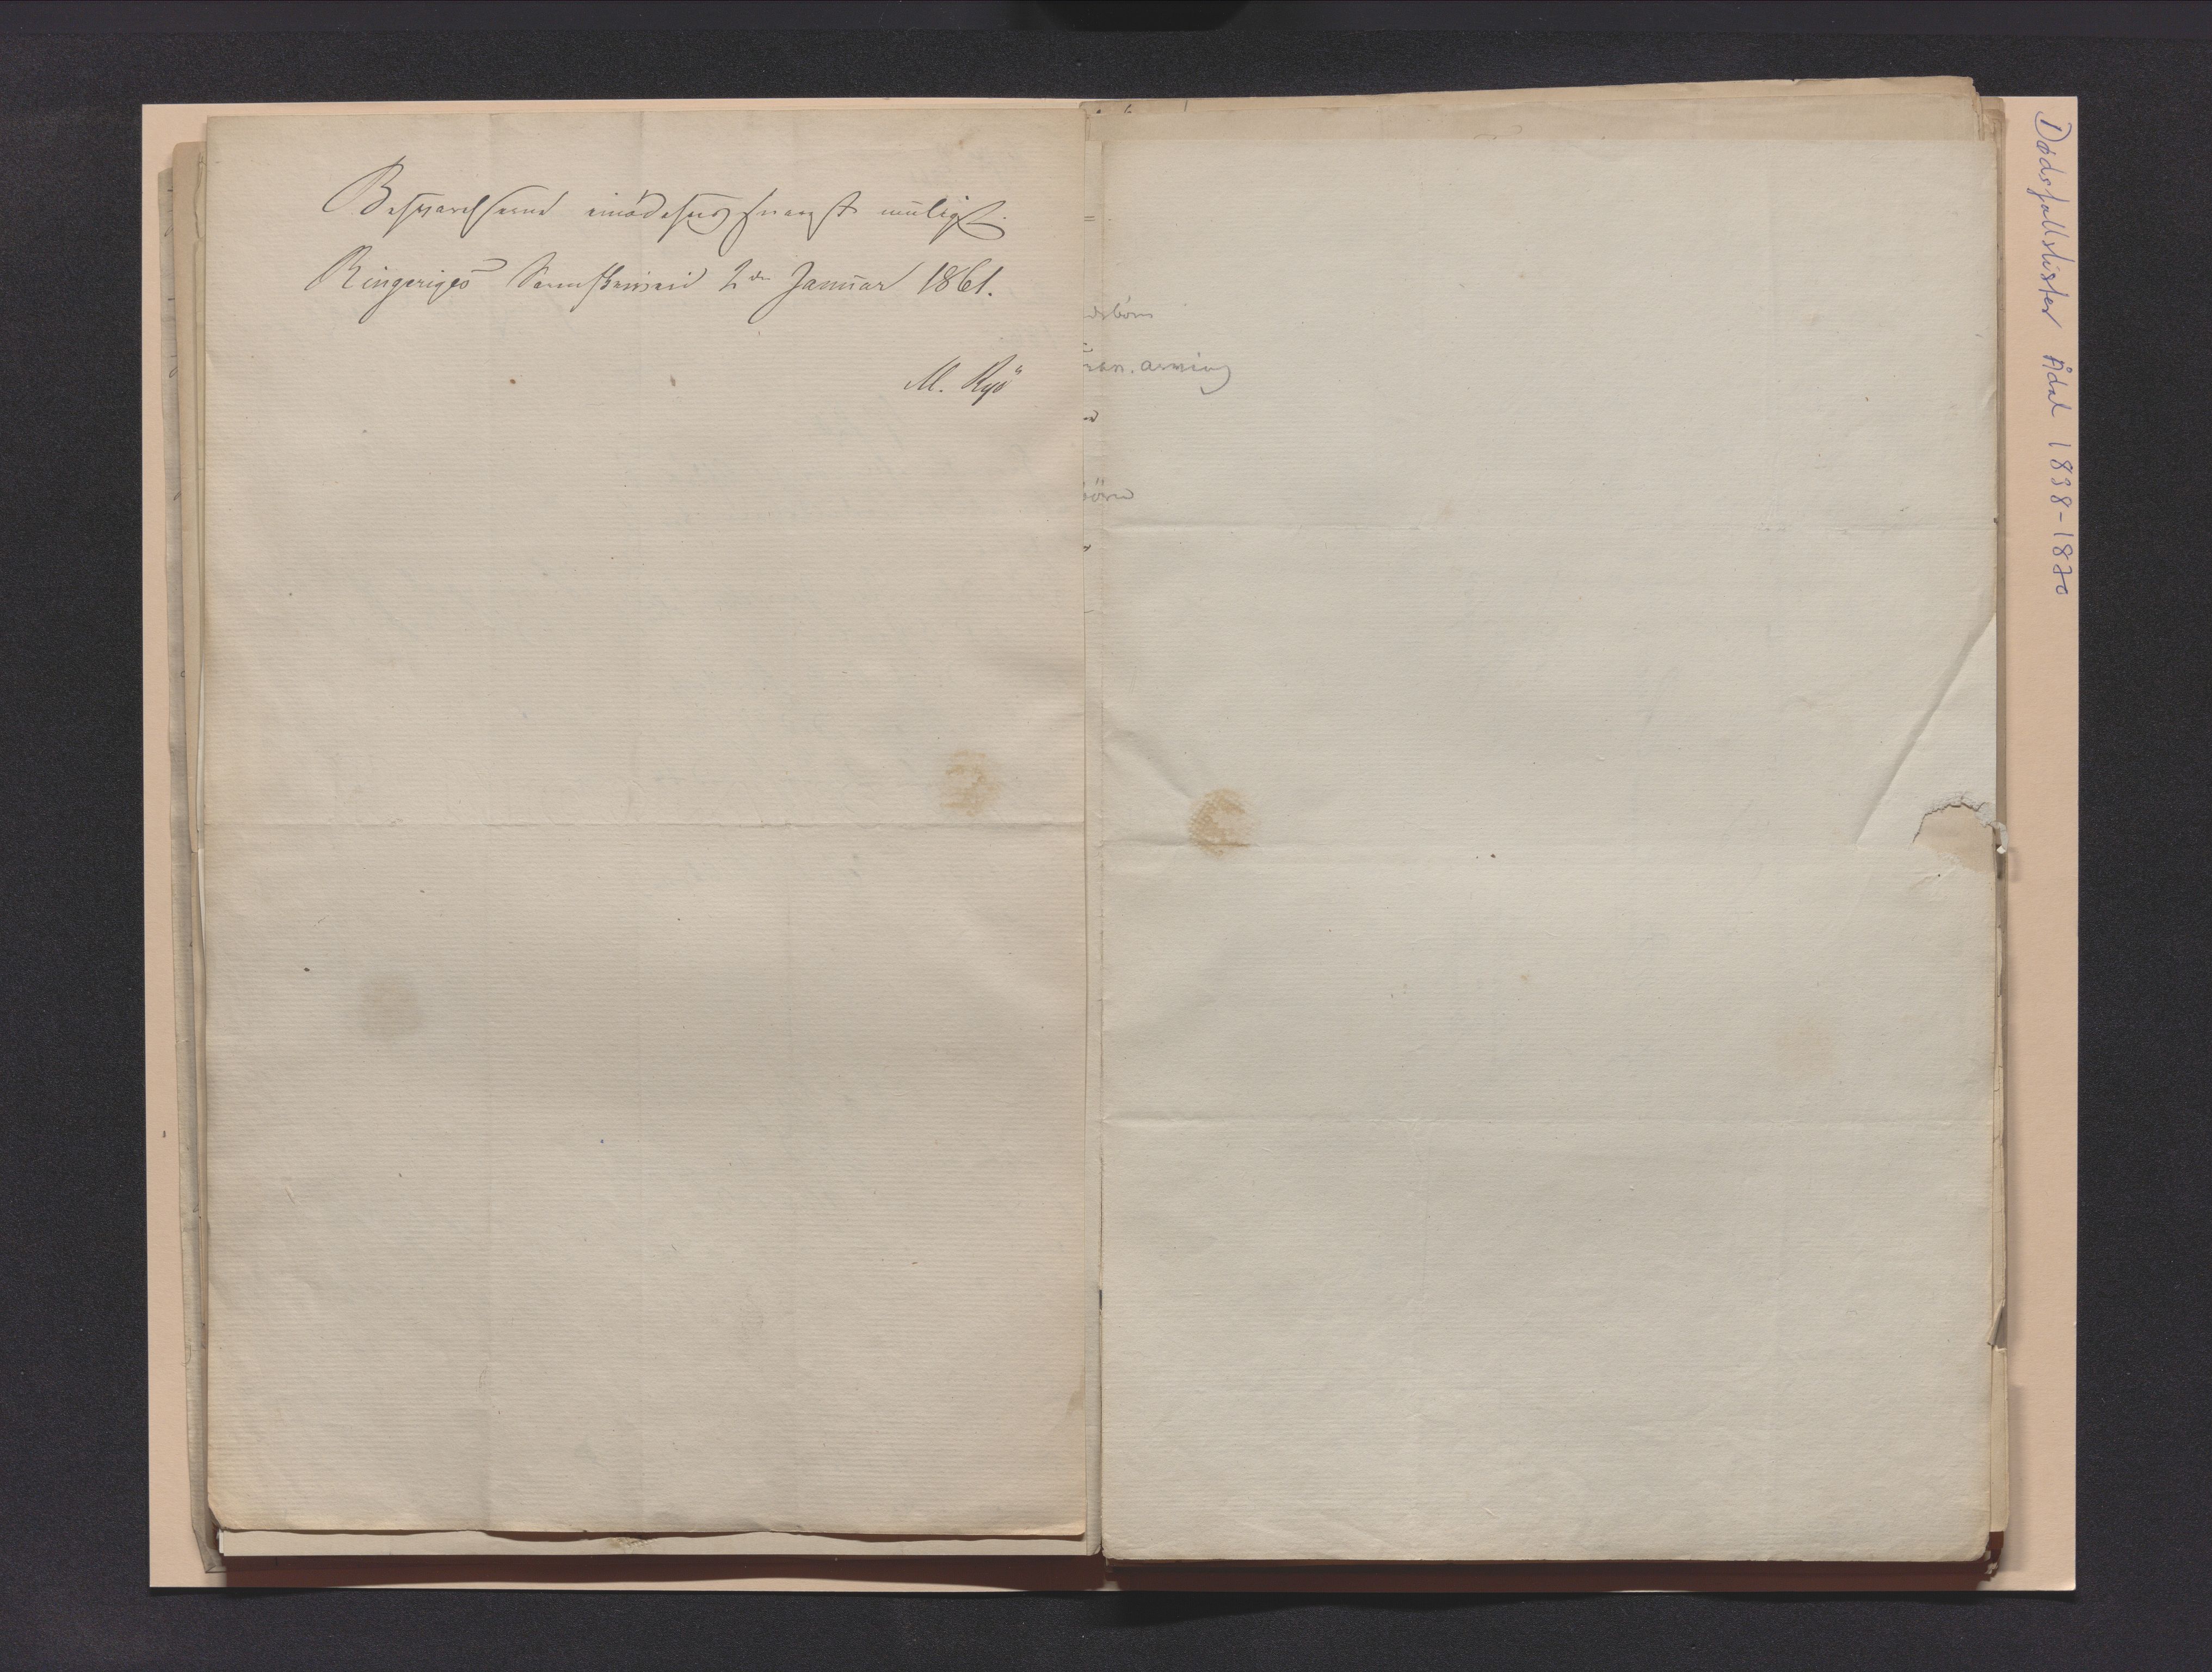 Besvarelserne imødesees snarest muligt.
Ringeriges Sorenskriveri 2den Januar 1861.
M. Ryo
dsbørn
arving
børn
Dødsfallslister Ådal 1838-1870